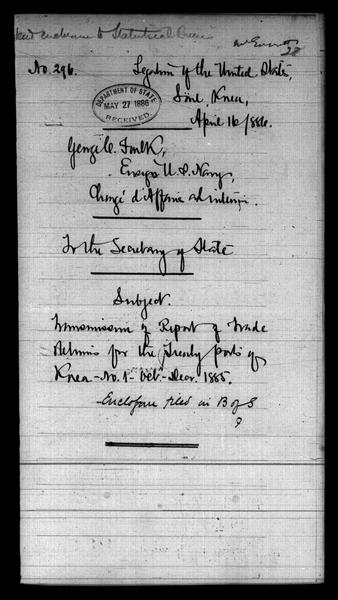 Send enclosure to Statistical Bureau
No. 296.
Legation of the United States,
Söul, Korea,
April 16/1886.
DEPARTMENT OF STATE
MAY 27 1886
RECEIVED.
George C. Foulk,
Ensign U.S. Navy,
Chargé d'Affaires ad interim.
To the Secretary of State
Subject.
Transmission of Report of Trade
Returns for the Treaty ports of
Korea - No. 1 - Oct - Dec. 1885.
Enclosure filed in B of S
?